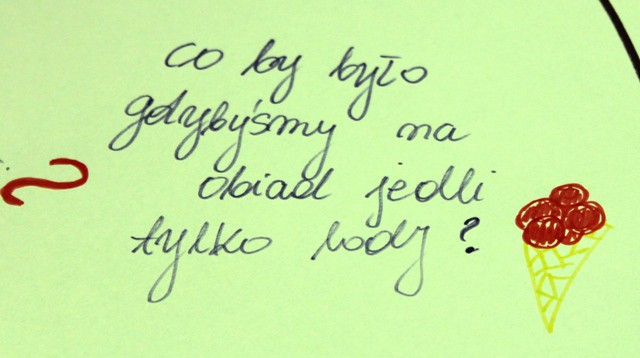 co by było
gdybyśmy na
obiad jedli
tylko lody?